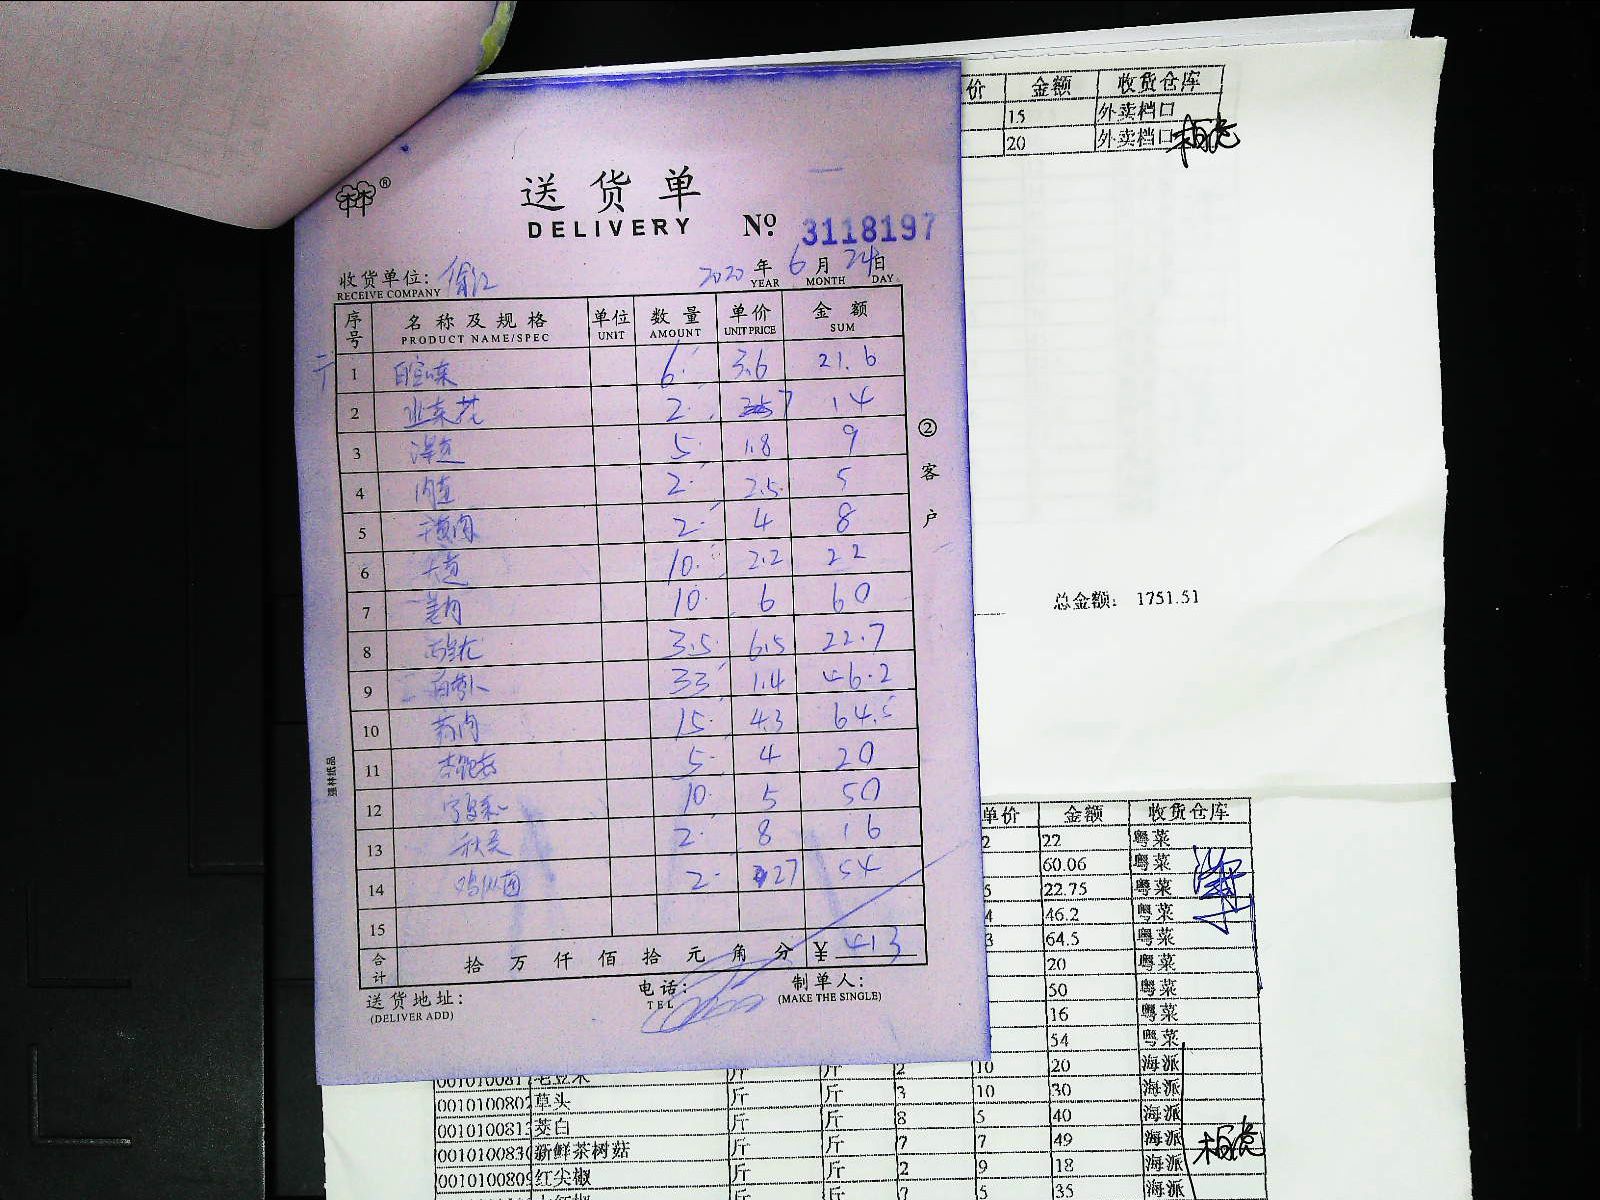 价 金额 收货仓库
15 外卖档口
20 外卖档口
送货单
DELIVERY
№ 3118197
收货单位:
RECEIVE COMPANY
2020 年 6 月 24 日
YEAR MONTH DAY
序号 名称及规格 单位 数量 单价 金额
PRODUCT NAME/SPEC UNIT AMOUNT UNIT PRICE SUM
1 6 3.6 21.6
2 韭菜花 2 7 14
3 5 1.8 9
4 2 2.5 5
5 2 4 8
6 10 2.2 22
7 10 6 60
8 西兰花 3.5 6.5 22.7
9 白萝卜 33 1.4 46.2
10 15 4.3 64.5
11 杏鲍菇 5 4 20
12 10 5 50
13 秋葵 2 8 16
14 鸡纵菌 2 27 54
15
合计 拾 万 仟 佰 拾 元 角 分 ¥ 413
送货地址:
(DELIVER ADD)
电话:
TEL
制单人:
(MAKE THE SINGLE)
②客户
强林纸品
总金额: 1751.51
单价 金额 收货仓库
2 22 粤菜
60.06 粤菜
5 22.75 粤菜
4 46.2 粤菜
3 64.5 粤菜
20 粤菜
50 粤菜
16 粤菜
54 粤菜
斤 斤 2 10 20 海派
001010080 草头 斤 斤 3 10 30 海派
001010081 茭白 斤 斤 8 5 40 海派
001010083 新鲜茶树菇 斤 斤 7 7 49 海派
001010080 红尖椒 斤 斤 2 9 18 海派
斤 斤 7 5 35 海派